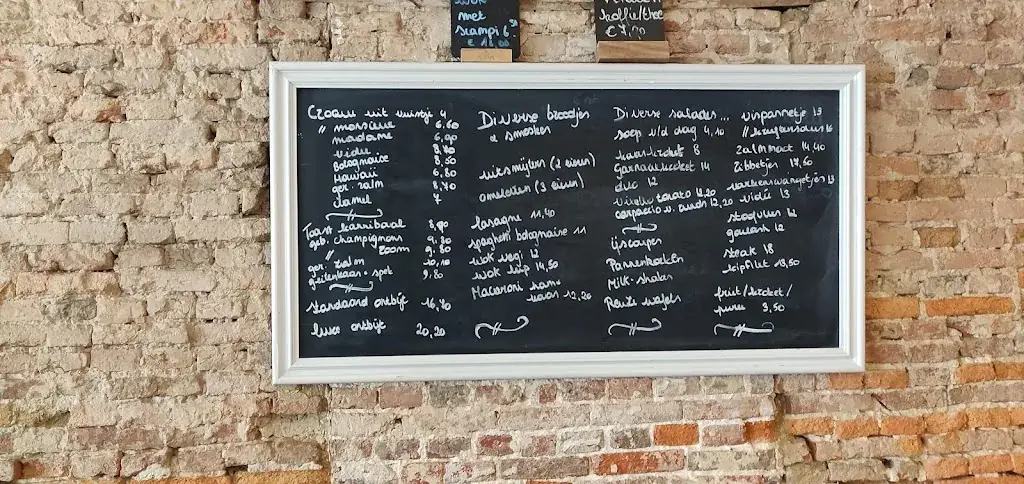 wok
met
scampi 6.
koffie/thee
€ 7,00
Croque uit vuistje 4
" monsieur 6,60
madame 6,90
vidée 8,70
Bolognaise 8,50
Hawaii 6,80
ger. zalm 8,70
Jamel 7
Toast kannibaal 8,90
geb. champignons 9,80
" room 9,80
ger. zalm 10,10
geitenkaas + spek 9,80
standaard ontbijt 16,70
luxe ontbijt 20,20
Diverse broodjes
& smossen
uitsmijters (2 eieren)
omeletten (3 eieren)
lasagne 11,40
spaghetti bolognaise 11
wok vegi 12
wok kip 14,50
Macaroni ham
kaas 12,20
Diverse salades ...
soep v/d dag 4,10
kaaskroket 8
Garnaalkroket 14
duo 12
vitello tonato 12,20
carpaccio v. rund 12,20
ijscoupes
Pannenkoeken
Milk-shakes
Reuze wafels
vispannetje 13
zalmmoot 14,40
Ribbetjes 17,50
varkenswangetjes 13
vidée 13
stoofvlees 12
goulash 12
steak 18
kipfilet 13,50
friet/kroket/
puree 3,50